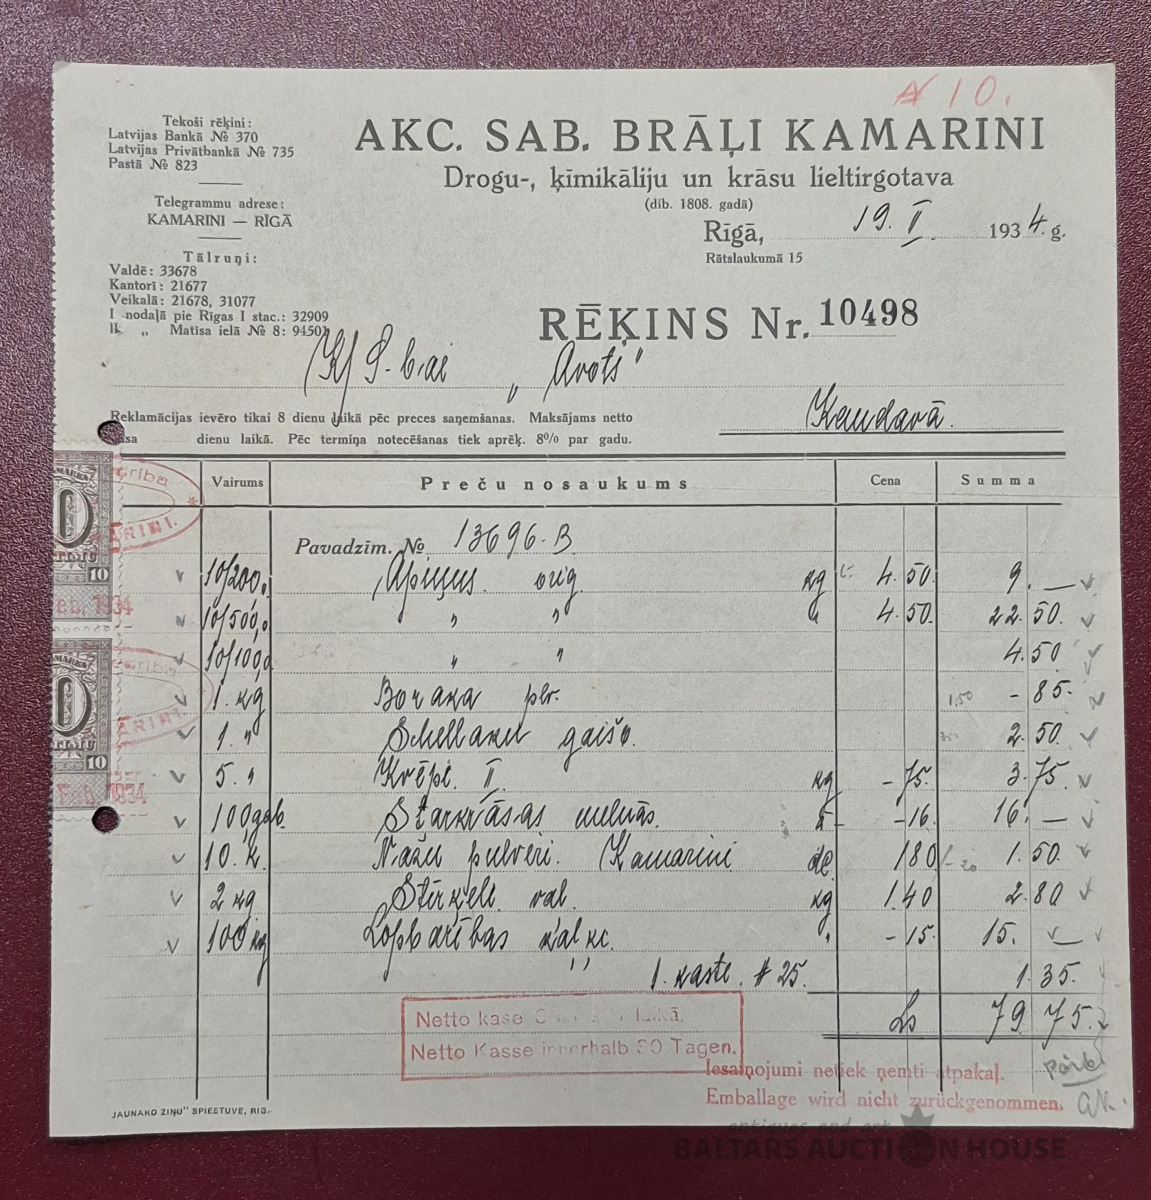 № 10.
Tekoši rēķini:
Latvijas Bankā № 370
Latvijas Privātbankā № 735
Pastā № 823
Telegrammu adrese:
KAMARINI — RĪGĀ
Tālruņi:
Valdē: 33678
Kantorī: 21677
Veikalā: 21678, 31077
I nodaļā pie Rīgas I stac.: 32909
II. „ Matīsa ielā № 8: 94502
AKC. SAB. BRĀĻI KAMARINI
Drogu-, ķīmikāliju un krāsu lieltirgotava
(dib. 1808. gadā)
Rīgā, 19. II. 1934. g.
Rātslaukumā 15
RĒĶINS Nr. 10498
K/S-b-ai „Avots"
Kandavā.
Reklamācijas ievēro tikai 8 dienu laikā pēc preces saņemšanas. Maksājams netto
dienu laikā. Pēc termiņa notecēšanas tiek aprēķ. 8% par gadu.
Vairums Preču nosaukums Cena Summa
Pavadzīm. № 13696-B
10/200,0 Apiņus orig kg 4.50 9. —
10/500,0 „ „ „ 4.50. 22.50.
10/100,0 „ „ 4.50
1. kg Boraka plv. 1.50 - 85.
1. „ Schelland gaišo. 2.50.
5. „ Krēpi. II. kg - 75. 3.75.
100 gab. Starkrāsas melnās. - 16. 16. —
10. K. Nažu pulveri. Kamarini de 1.80 1.50
2 kg Stirķeli. val. kg 1.40 2.80
100 kg Lopbarības kaļķi. „ - 15. 15. —
1. kaste. # 25. 1.35.
Ls 79.75.
Netto kase laikā.
Netto Kasse innerhalb 30 Tagen.
Iesaiņojumi netiek ņemti atpakaļ.
Emballage wird nicht zurückgenommen.
JAUNAKO ZIŅU" SPIESTUVE, RIG.
10
feb. 1934
10
1934
antiques and art
BALTARS AUCTION HOUSE